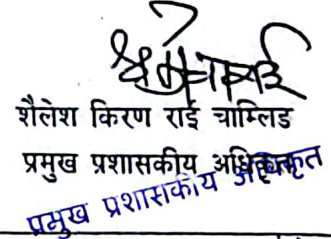 शैलेश किरण राई चाम्लिङ
प्रमुख प्रशासकीय अधिकृत
प्रमुख प्रशासकीय अधिकृत